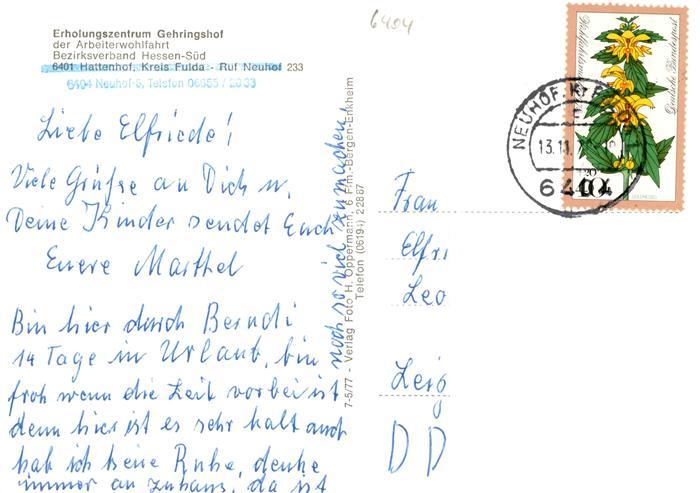 6404
Erholungszentrum Gehringshof
der Arbeiterwohlfahrt
Bezirksverband Hessen-Süd
6401 Hattenhof, Kreis Fulda - Ruf Neuhof 233
6404 Neuhof-5, Telefon 06655 / 2033
Liebe Elfriede!
Viele Grüße an Dich u.
Deine Kinder sendet Euch
Euere Marthel
Bin hier durch Berndi
14 Tage in Urlaub, bin
froh wenn die Zeit vorbei ist
denn hier ist es sehr kalt auch
hab ich keine Ruhe, denke
immer an zuhaus, da ist
noch so viel zu machen.
7-5/77 - Verlag Foto H. Oppermann, 6 Ffm.-Bergen-Enkheim
Telefon (06194) 22887
Deutsche Bundespost
NEUHOF, Kr F
13.11.
6404
Frau
Elfri
Leo
Leip
DD